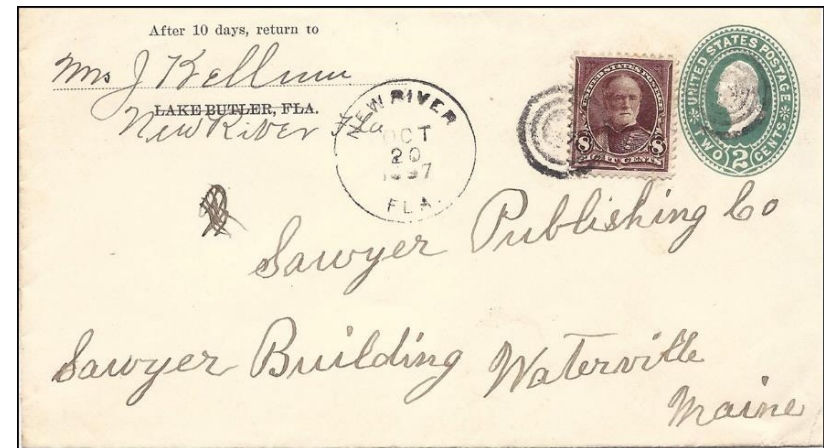 After 10 days, return to
Mrs J Kellum
LAKE BUTLER, FLA.
New River Fla
NEW RIVER
OCT
20
1897
FLA.
UNITED STATES POSTAGE
8 8
EIGHT CENTS
UNITED STATES POSTAGE
TWO 2 CENTS
Sawyer Publishing Co
Sawyer Building Waterville
Maine